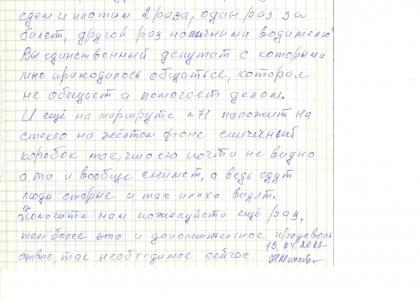 едем и платим 2 раза, один раз за
билет, другой раз наличными водителю
Вы единственный депутат с которым
мне приходилось общаться, которая
не обещает а помогает делом.
И ещё на маршруте №71 положит на
стекло на жёлтом фоне спичечный
коробок так, что его почти не видно
а то и вообще снимет, а ведь едут
люди старые и так плохо видят.
Помогите нам пожалуйста ещё раз,
тем более это и дополнительное продоволь
ствие, так необходимое сейчас